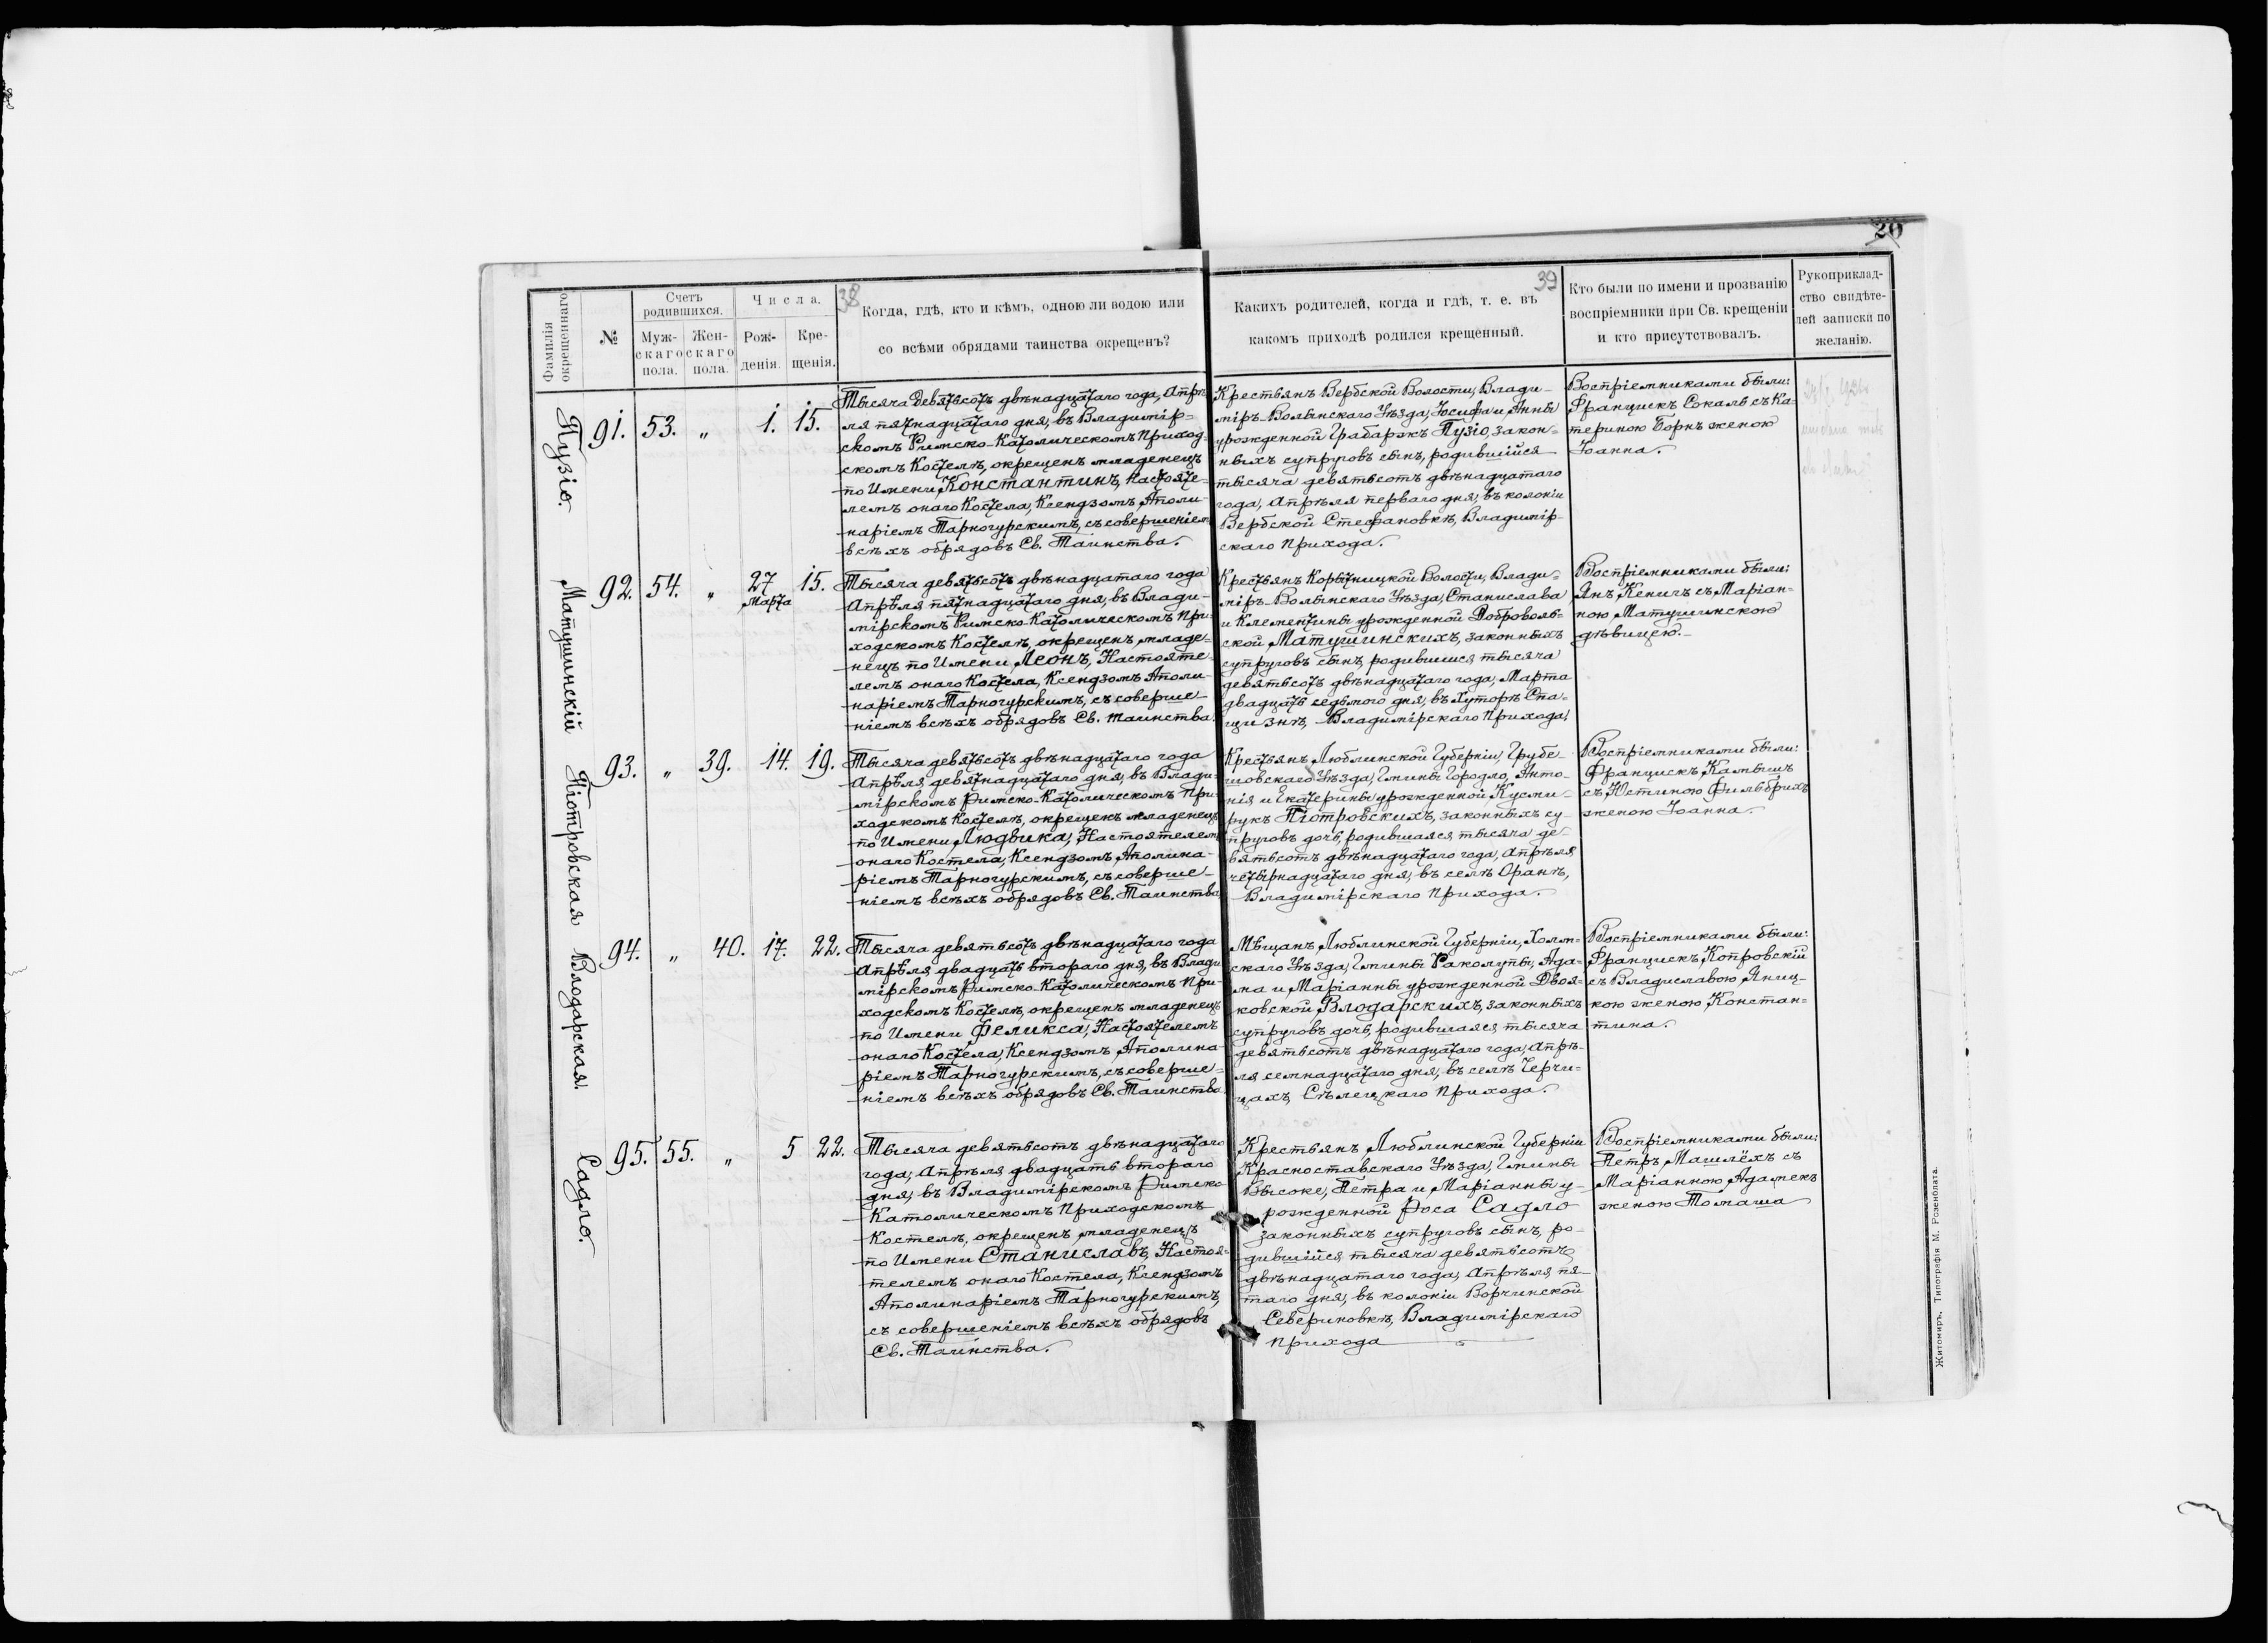 20
38
39
Фамилія окрещеннаго
№
Счетъ родившихся.
Муж-
скаго
пола.
Жен-
скаго
пола.
Числа.
Рож-
денія.
Кре-
щенія.
Когда, гдѣ, кто и кѣмъ, одною ли водою или
со всѣми обрядами таинства окрещенъ?
Какихъ родителей, когда и гдѣ, т. е. въ
какомъ приходѣ родился крещенный.
Кто были по имени и прозванію
воспріемники при Св. крещеніи
и кто присутствовалъ.
Рукоприклад-
ство свидѣте-
лей записки по
желанію.
Пузіо.
91. 53. „ 1. 15.
Тысяча девятьсотъ двѣнадцатаго года, Апрѣ-
ля пятнадцатаго дня, въ Владимір-
скомъ Римско-Католическомъ Приход-
скомъ Костелѣ, окрещенъ младенецъ
по Имени Константинъ, Настояте-
лемъ онаго Костела, Ксендзомъ Аполи-
наріемъ Тарногурскимъ, съ совершеніемъ
всѣхъ обрядовъ Св. Таинства.
Крестьянъ Вербской Волости, Влади-
міръ-Волынскаго Уѣзда, Іосифа и Анны
урожденной Грабаржъ Пузіо, закон-
ныхъ супруговъ сынъ, родившійся
тысяча девятьсотъ двѣнадцатаго
года, Апрѣля перваго дня, въ колоніи
Вербской Стефановкѣ, Владимір-
скаго Прихода.
Воспріемниками были:
Францискъ Сокалъ съ Ка-
териною Борнъ женою
Іоанна.
Матушинскій
92. 54. „ 27 Марта 15.
Тысяча девятьсотъ двѣнадцатаго года
Апрѣля пятнадцатаго дня, въ Влади-
мірскомъ Римско-Католическомъ При-
ходскомъ Костелѣ, окрещенъ младе-
нецъ по Имени Леонъ, Настояте-
лемъ онаго Костела, Ксендзомъ Аполи-
наріемъ Тарногурскимъ, съ соверше-
ніемъ всѣхъ обрядовъ Св. таинства.
Крестьянъ Корытницкой Волости, Влади-
міръ-Волынскаго Уѣзда, Станислава
и Клементины урожденной Доброволь-
ской Матушинскихъ, законныхъ
супруговъ сынъ, родившися тысяча
девятьсотъ двѣнадцатаго года, Марта
двадцать седьмого дня, въ Хуторѣ Спа-
щизнѣ, Владимірскаго Прихода.
Воспріемниками были:
Янъ Кеничъ съ Маріан-
ною Матушинскою
дѣвицею.
Піотровская
93. „ 39. 14. 19.
Тысяча девятьсотъ двѣнадцатаго года
Апрѣля девятнадцатаго дня, въ Влади-
мірскомъ Римско-Католическомъ При-
ходскомъ Костелѣ, окрещенъ младенецъ
по Имени Людвика, Настоятелемъ
онаго Костела, Ксендзомъ Аполина-
ріемъ Тарногурскимъ, съ соверше-
ніемъ всѣхъ обрядовъ Св. Таинства.
Крестьянъ Люблинской Губерніи, Грубе-
шовскаго Уѣзда, Гмины Городло, Анто-
нія и Екатерины урожденной Кусми-
рукъ Піотровскихъ, законныхъ су-
пруговъ дочь, родившаяся тысяча де-
вятьсотъ двѣнадцатаго года, Апрѣля
четырнадцатаго дня, въ селѣ Оранѣ,
Владимірскаго Прихода.
Воспріемниками были:
Францискъ Камышъ
съ Юстиною Фильбрихъ
женою Іоанна.
Влодарская
94. „ 40. 17. 22.
Тысяча девятьсотъ двѣнадцатаго года
Апрѣля двадцать втораго дня, въ Влади-
мірскомъ Римско-Католическомъ При-
ходскомъ Костелѣ, окрещенъ младенецъ
по Имени Феликса, Настоятелемъ
онаго Костела, Ксендзомъ Аполина-
ріемъ Тарногурскимъ, съ соверше-
ніемъ всѣхъ обрядовъ Св. Таинства.
Мѣщанъ Люблинской Губерніи, Холм-
скаго Уѣзда, Гмины Раколупы, Ада-
ма и Маріанны урожденной Двоя-
ковской Влодарскихъ, законныхъ
супруговъ дочь, родившаяся тысяча
девятьсотъ двѣнадцатаго года, Апрѣ-
ля семнадцатаго дня, въ селѣ Черчи-
цахъ, Сѣлецкаго Прихода.
Воспріемниками были:
Францискъ Копровскій
съ Владиславою Яниц-
кою женою Констан-
тина.
Садло.
95. 55. „ 5 22.
Тысяча девятьсотъ двѣнадцатаго
года, Апрѣля двадцать втораго
дня, въ Владимірскомъ Римско-
Католическомъ Приходскомъ
Костелѣ, окрещенъ младенецъ
по Имени Станиславъ, Настоя-
телемъ онаго Костела, Ксендзомъ
Аполинаріемъ Тарногурскимъ,
съ совершеніемъ всѣхъ обрядовъ
Св. Таинства.
Крестьянъ Люблинской Губерніи
Красноставскаго Уѣзда, Гмины
Высоке, Петра и Маріанны у-
рожденной Роса Садло
законныхъ супруговъ сынъ, ро-
дившійся тысяча девятьсотъ
двѣнадцатаго года, Апрѣля пя-
таго дня, въ колоніи Ворчинской
Севериновкѣ, Владимірскаго
Прихода
Воспріемниками были:
Петръ Машлёхъ съ
Маріанною Адамекъ
женою Томаша
Житомиръ, Типографія М. Розенблата.